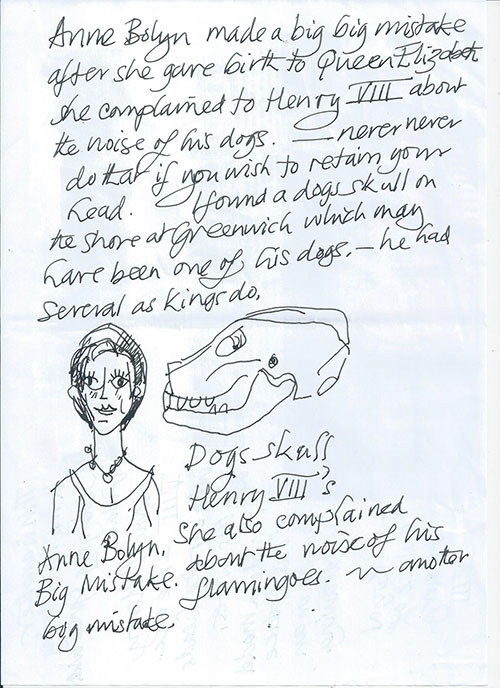 Anne Bolyn made a big big mistake
after she gave birth to Queen Elizabeth
she complained to Henry VIII about
the noise of his dogs. — never never
do that if you wish to retain your
head. I found a dogs skull on
the shore at Greenwich which may
have been one of his dogs. — he had
several as kings do.
Dogs skull
Henry VIII's
Anne Bolyn.
Big Mistake.
She also complained
about the noise of his
flamingoes. ~ another
big mistake.